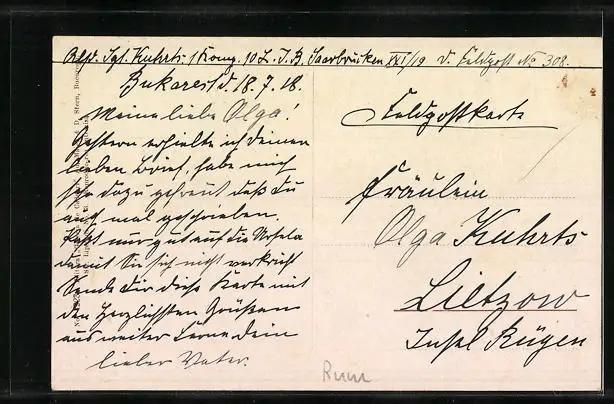 Abs. Igl. Kuhrts 1 Komp. 10 L. I. B. Saarbrücken XXI/19 d. Feldpost No 308.
Bukarest d. 18.7.18.
Meine liebe Olga!
Gestern erhielte ich deinen
lieben Brief, habe mich
sehr dazu gefreut daß Du
auch mal geschrieben.
Paßt nur gut auf die
damit Sie sich nicht verkriecht
Sende Dir diese Karte mit
den Herzlichsten Grüßen
aus weiter Ferne Dein
lieber Vater.
Feldpostkarte
Fräulein
Olga Kuhrts
Lietzow
Insel Rügen
Rum